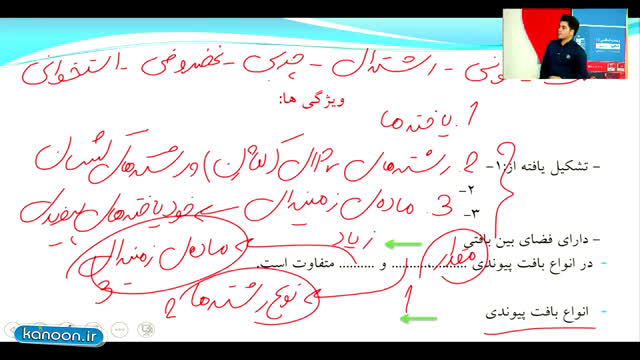 خونی - رشته‌ای - چربی - غضروفی - استخوانی
ویژگی ها:
1. یاخته‌ها
- تشکیل یافته از: ۱-
2. رشته‌های کلاژن و رشته‌های کشسان
۲-
3. ماده‌ی زمینه‌ای خود یاخته‌های
۳-
- دارای فضای بین بافتی
زیاد
ماده‌ی زمینه‌ای
مقدار
- در انواع بافت پیوندی .................... و .......... متفاوت است.
3
نوع رشته‌ها 2
1
انواع بافت پیوندی
kanoon.ir